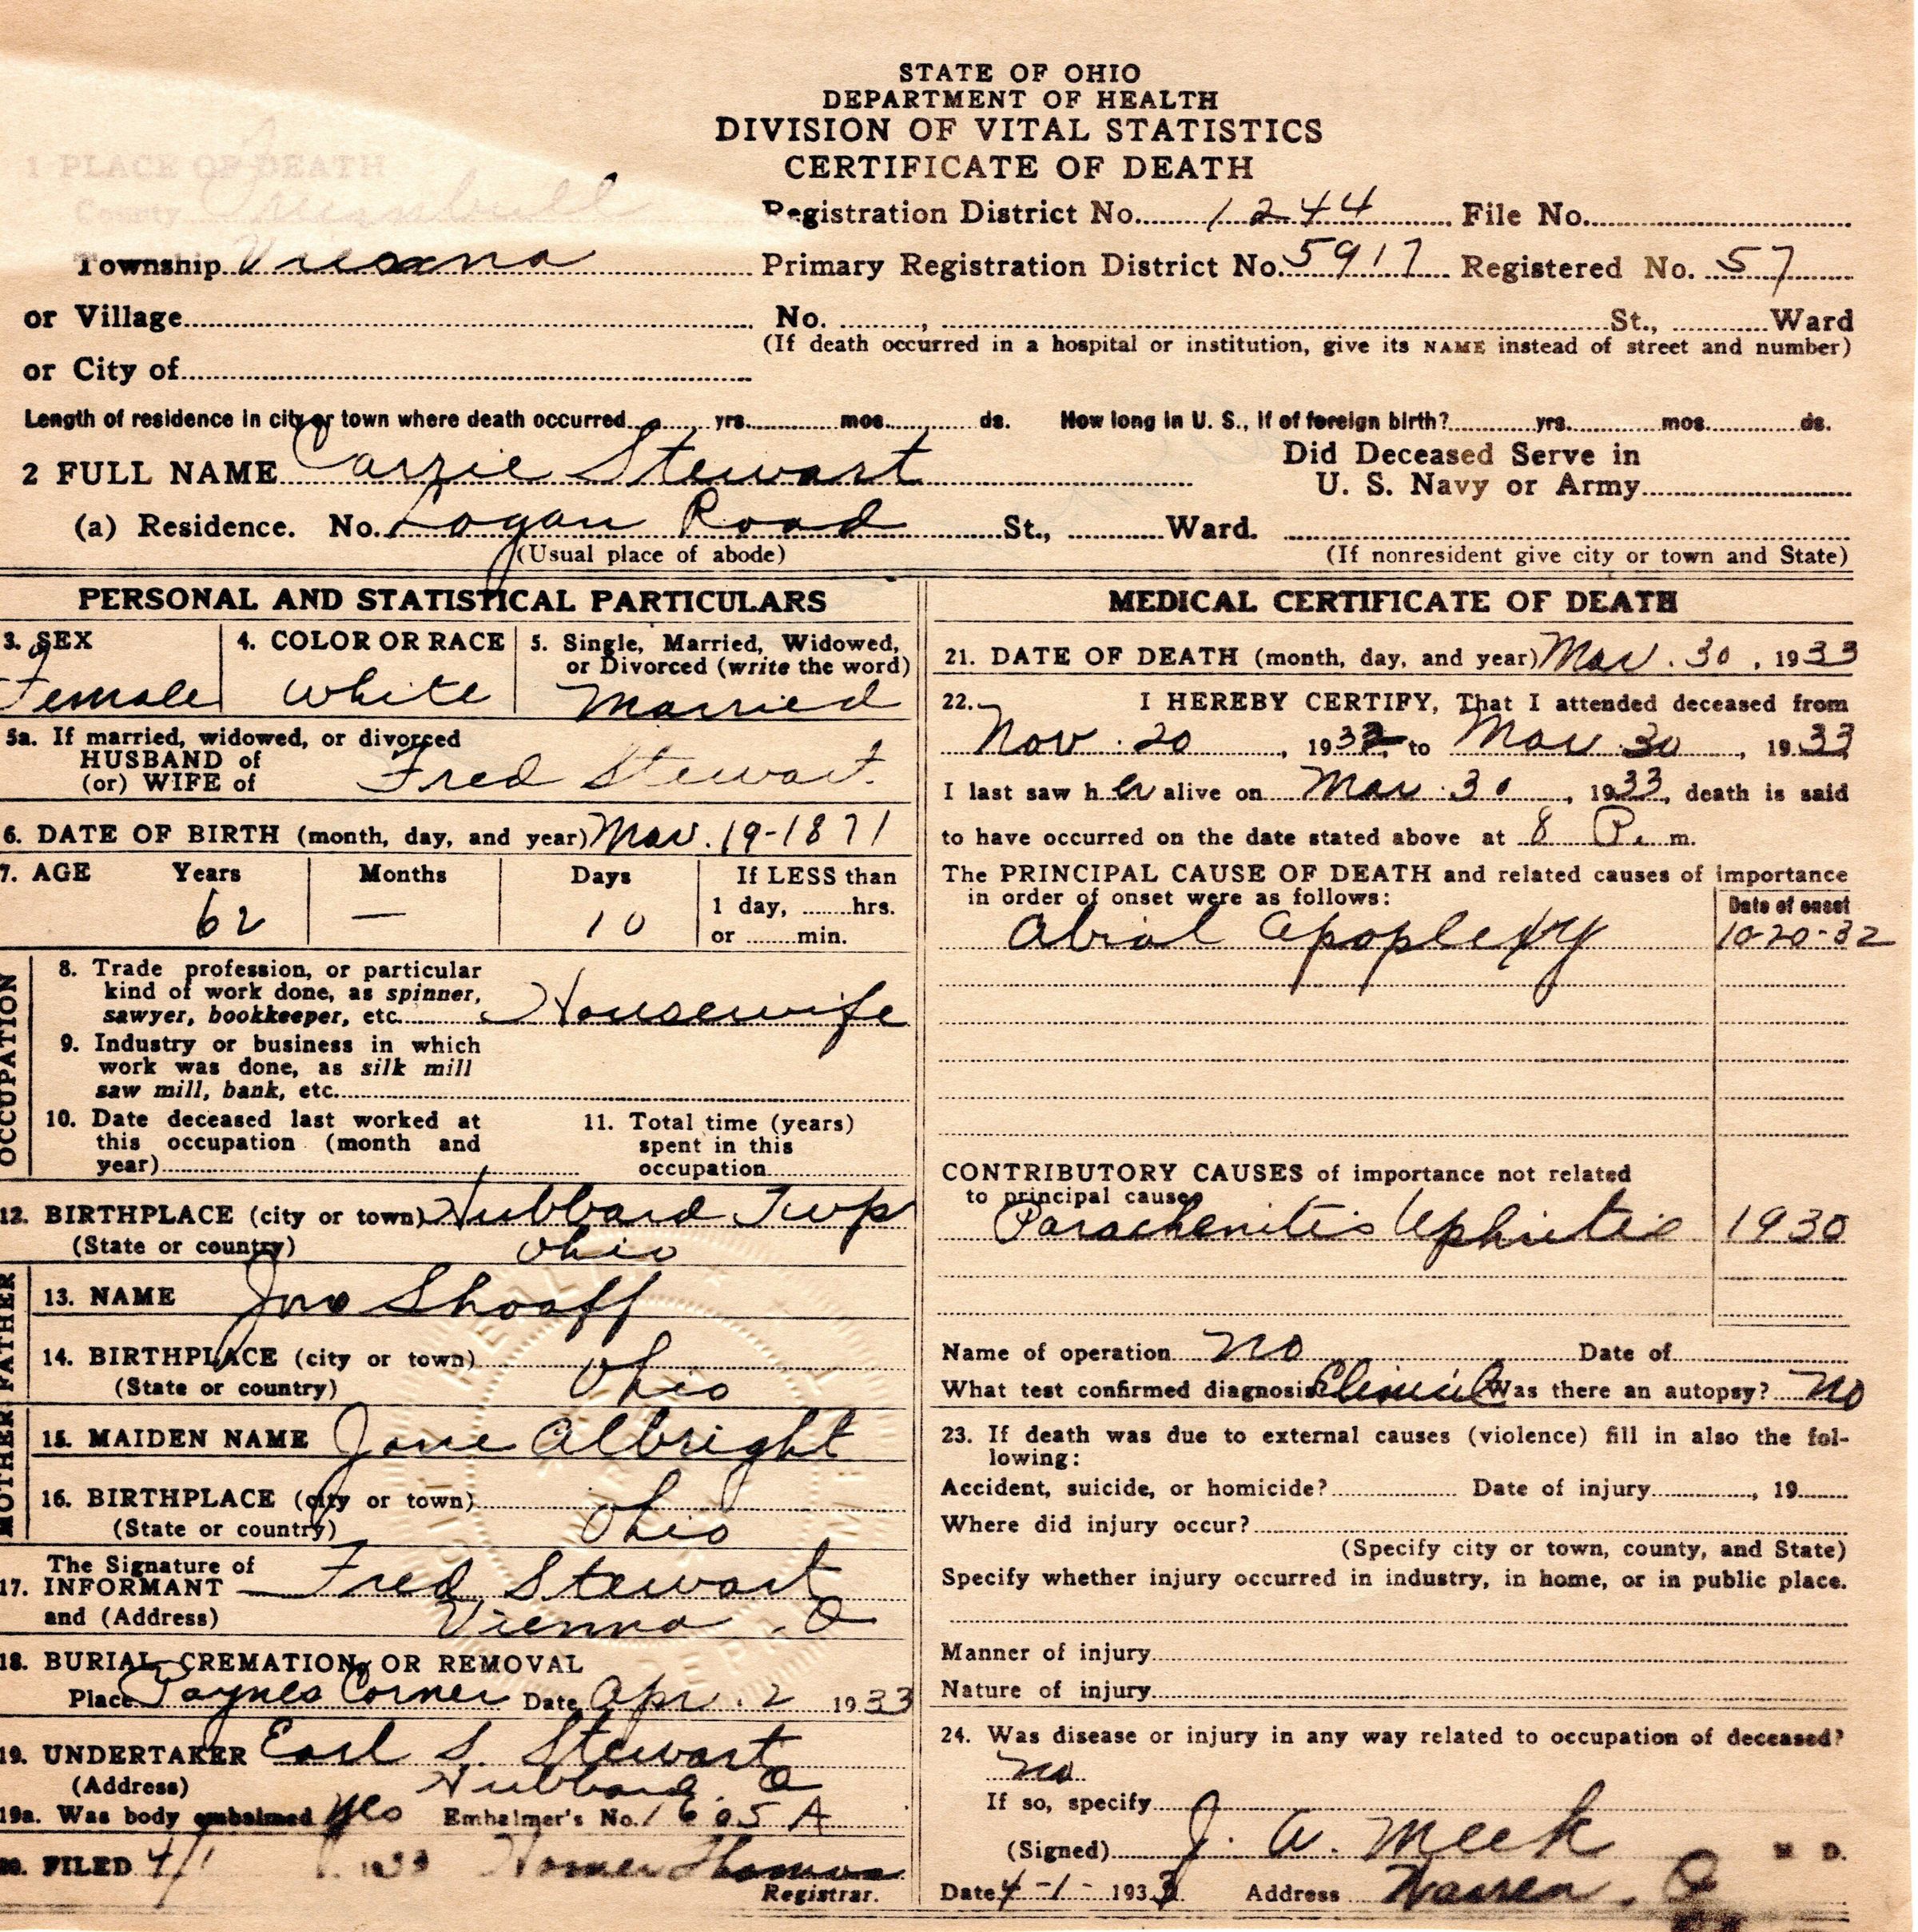 STATE OF OHIO
DEPARTMENT OF HEALTH
DIVISION OF VITAL STATISTICS
CERTIFICATE OF DEATH
1 PLACE OF DEATH
County Trumbull
Registration District No. 1244 File No.
Township Vienna Primary Registration District No. 5917 Registered No. 57
or Village No. , St., Ward
(If death occurred in a hospital or institution, give its NAME instead of street and number)
or City of
Length of residence in city or town where death occurred yrs. mos. ds. How long in U. S., if of foreign birth? yrs. mos. ds.
2 FULL NAME Carrie Stewart Did Deceased Serve in
U. S. Navy or Army
(a) Residence. No. Logan Road St., Ward.
(Usual place of abode) (If nonresident give city or town and State)
PERSONAL AND STATISTICAL PARTICULARS
3. SEX 4. COLOR OR RACE 5. Single, Married, Widowed,
or Divorced (write the word)
Female White Married
5a. If married, widowed, or divorced
HUSBAND of
(or) WIFE of Fred Stewart
6. DATE OF BIRTH (month, day, and year) Mar. 19-1871
7. AGE Years Months Days If LESS than
62 — 10 1 day, hrs.
or min.
OCCUPATION
8. Trade profession, or particular
kind of work done, as spinner,
sawyer, bookkeeper, etc. Housewife
9. Industry or business in which
work was done, as silk mill
saw mill, bank, etc.
10. Date deceased last worked at
this occupation (month and
year)
11. Total time (years)
spent in this
occupation
12. BIRTHPLACE (city or town) Hubbard Twp
(State or country) Ohio
FATHER
13. NAME Jno Shoaff
14. BIRTHPLACE (city or town)
(State or country) Ohio
MOTHER
15. MAIDEN NAME Jane Albright
16. BIRTHPLACE (city or town)
(State or country) Ohio
The Signature of
17. INFORMANT Fred Stewart
and (Address) Vienna, O
18. BURIAL, CREMATION, OR REMOVAL
Place Paynes Corner Date Apr. 2 1933
19. UNDERTAKER Earl S. Stewart
(Address) Hubbard, O
19a. Was body embalmed yes Embalmer's No. 1605 A
20. FILED 4/1 1933 Homer Thomas
Registrar.
MEDICAL CERTIFICATE OF DEATH
21. DATE OF DEATH (month, day, and year) Mar. 30, 1933
22. I HEREBY CERTIFY, That I attended deceased from
Nov. 20, 1932, to Mar 30, 1933
I last saw her alive on Mar. 30, 1933, death is said
to have occurred on the date stated above at 8 P. m.
The PRINCIPAL CAUSE OF DEATH and related causes of importance
in order of onset were as follows:
Date of onset
apoplexy 10-20-32
CONTRIBUTORY CAUSES of importance not related
to principal cause
1930
Name of operation no Date of
What test confirmed diagnosis? Clinical Was there an autopsy? no
23. If death was due to external causes (violence) fill in also the fol-
lowing:
Accident, suicide, or homicide? Date of injury , 19
Where did injury occur?
(Specify city or town, county, and State)
Specify whether injury occurred in industry, in home, or in public place.
Manner of injury
Nature of injury
24. Was disease or injury in any way related to occupation of deceased?
no
If so, specify
(Signed) J. W. Meek M. D.
Date 4-1-1933 Address Warren, O